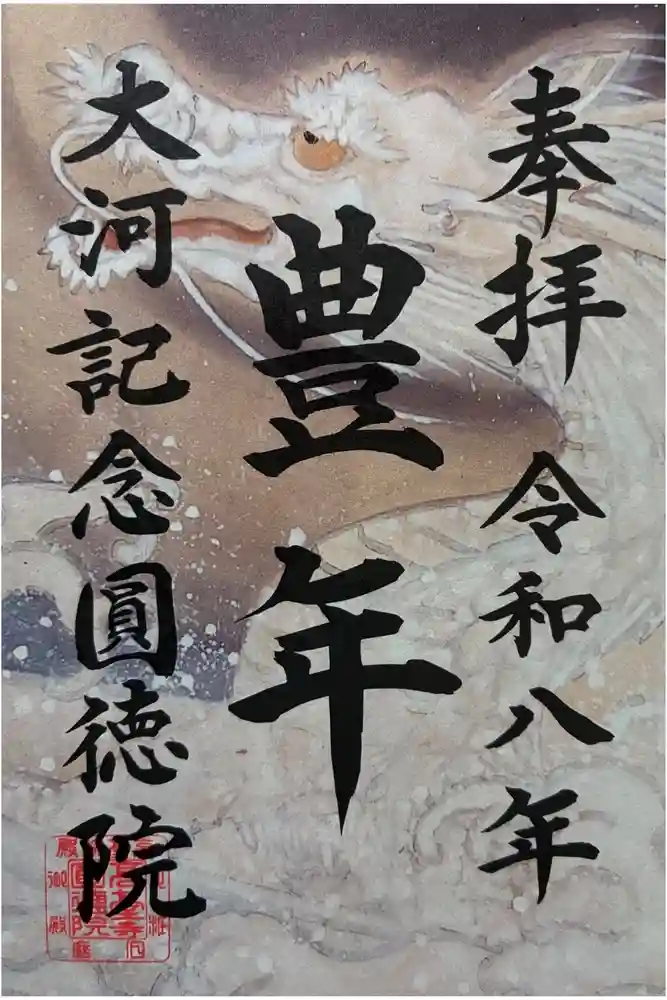 奉拝　令和八年
豊年
大河記念圓徳院